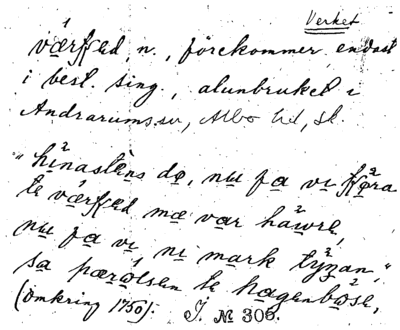 Verket
värket, n., förekommer endast
i best. sing., alunbruket i
Andrarums sn, Albo hd, sk.
"hinastens do, nu fa vi köra
te värket mæ var hawre,
nu fa vi ni mark tyzan,"
sa pærolsen te hagenbose,
(omkring 1750). I. № 306.